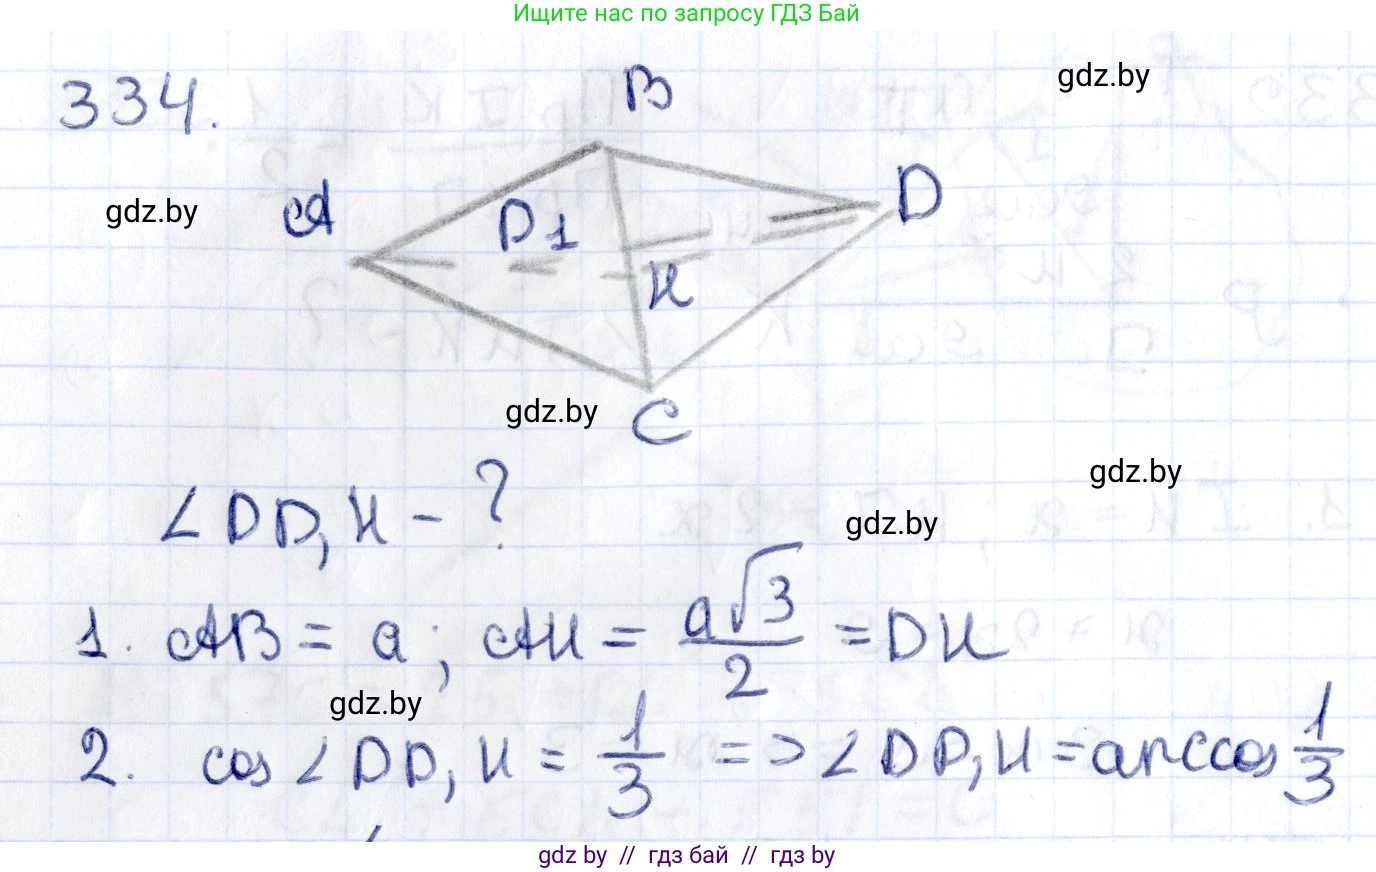 Ищите нас по запросу ГДЗ Бай
334.
B
gdz.by
A
D
gdz.by
D1
H
gdz.by
C
gdz.by
∠DD₁H - ?
gdz.by
1. AB = a; AH = a√3/2 = DH
gdz.by
2. cos∠DD₁H = 1/3 => ∠DD₁H = arccos 1/3
gdz.by // гдз бай // гдз by